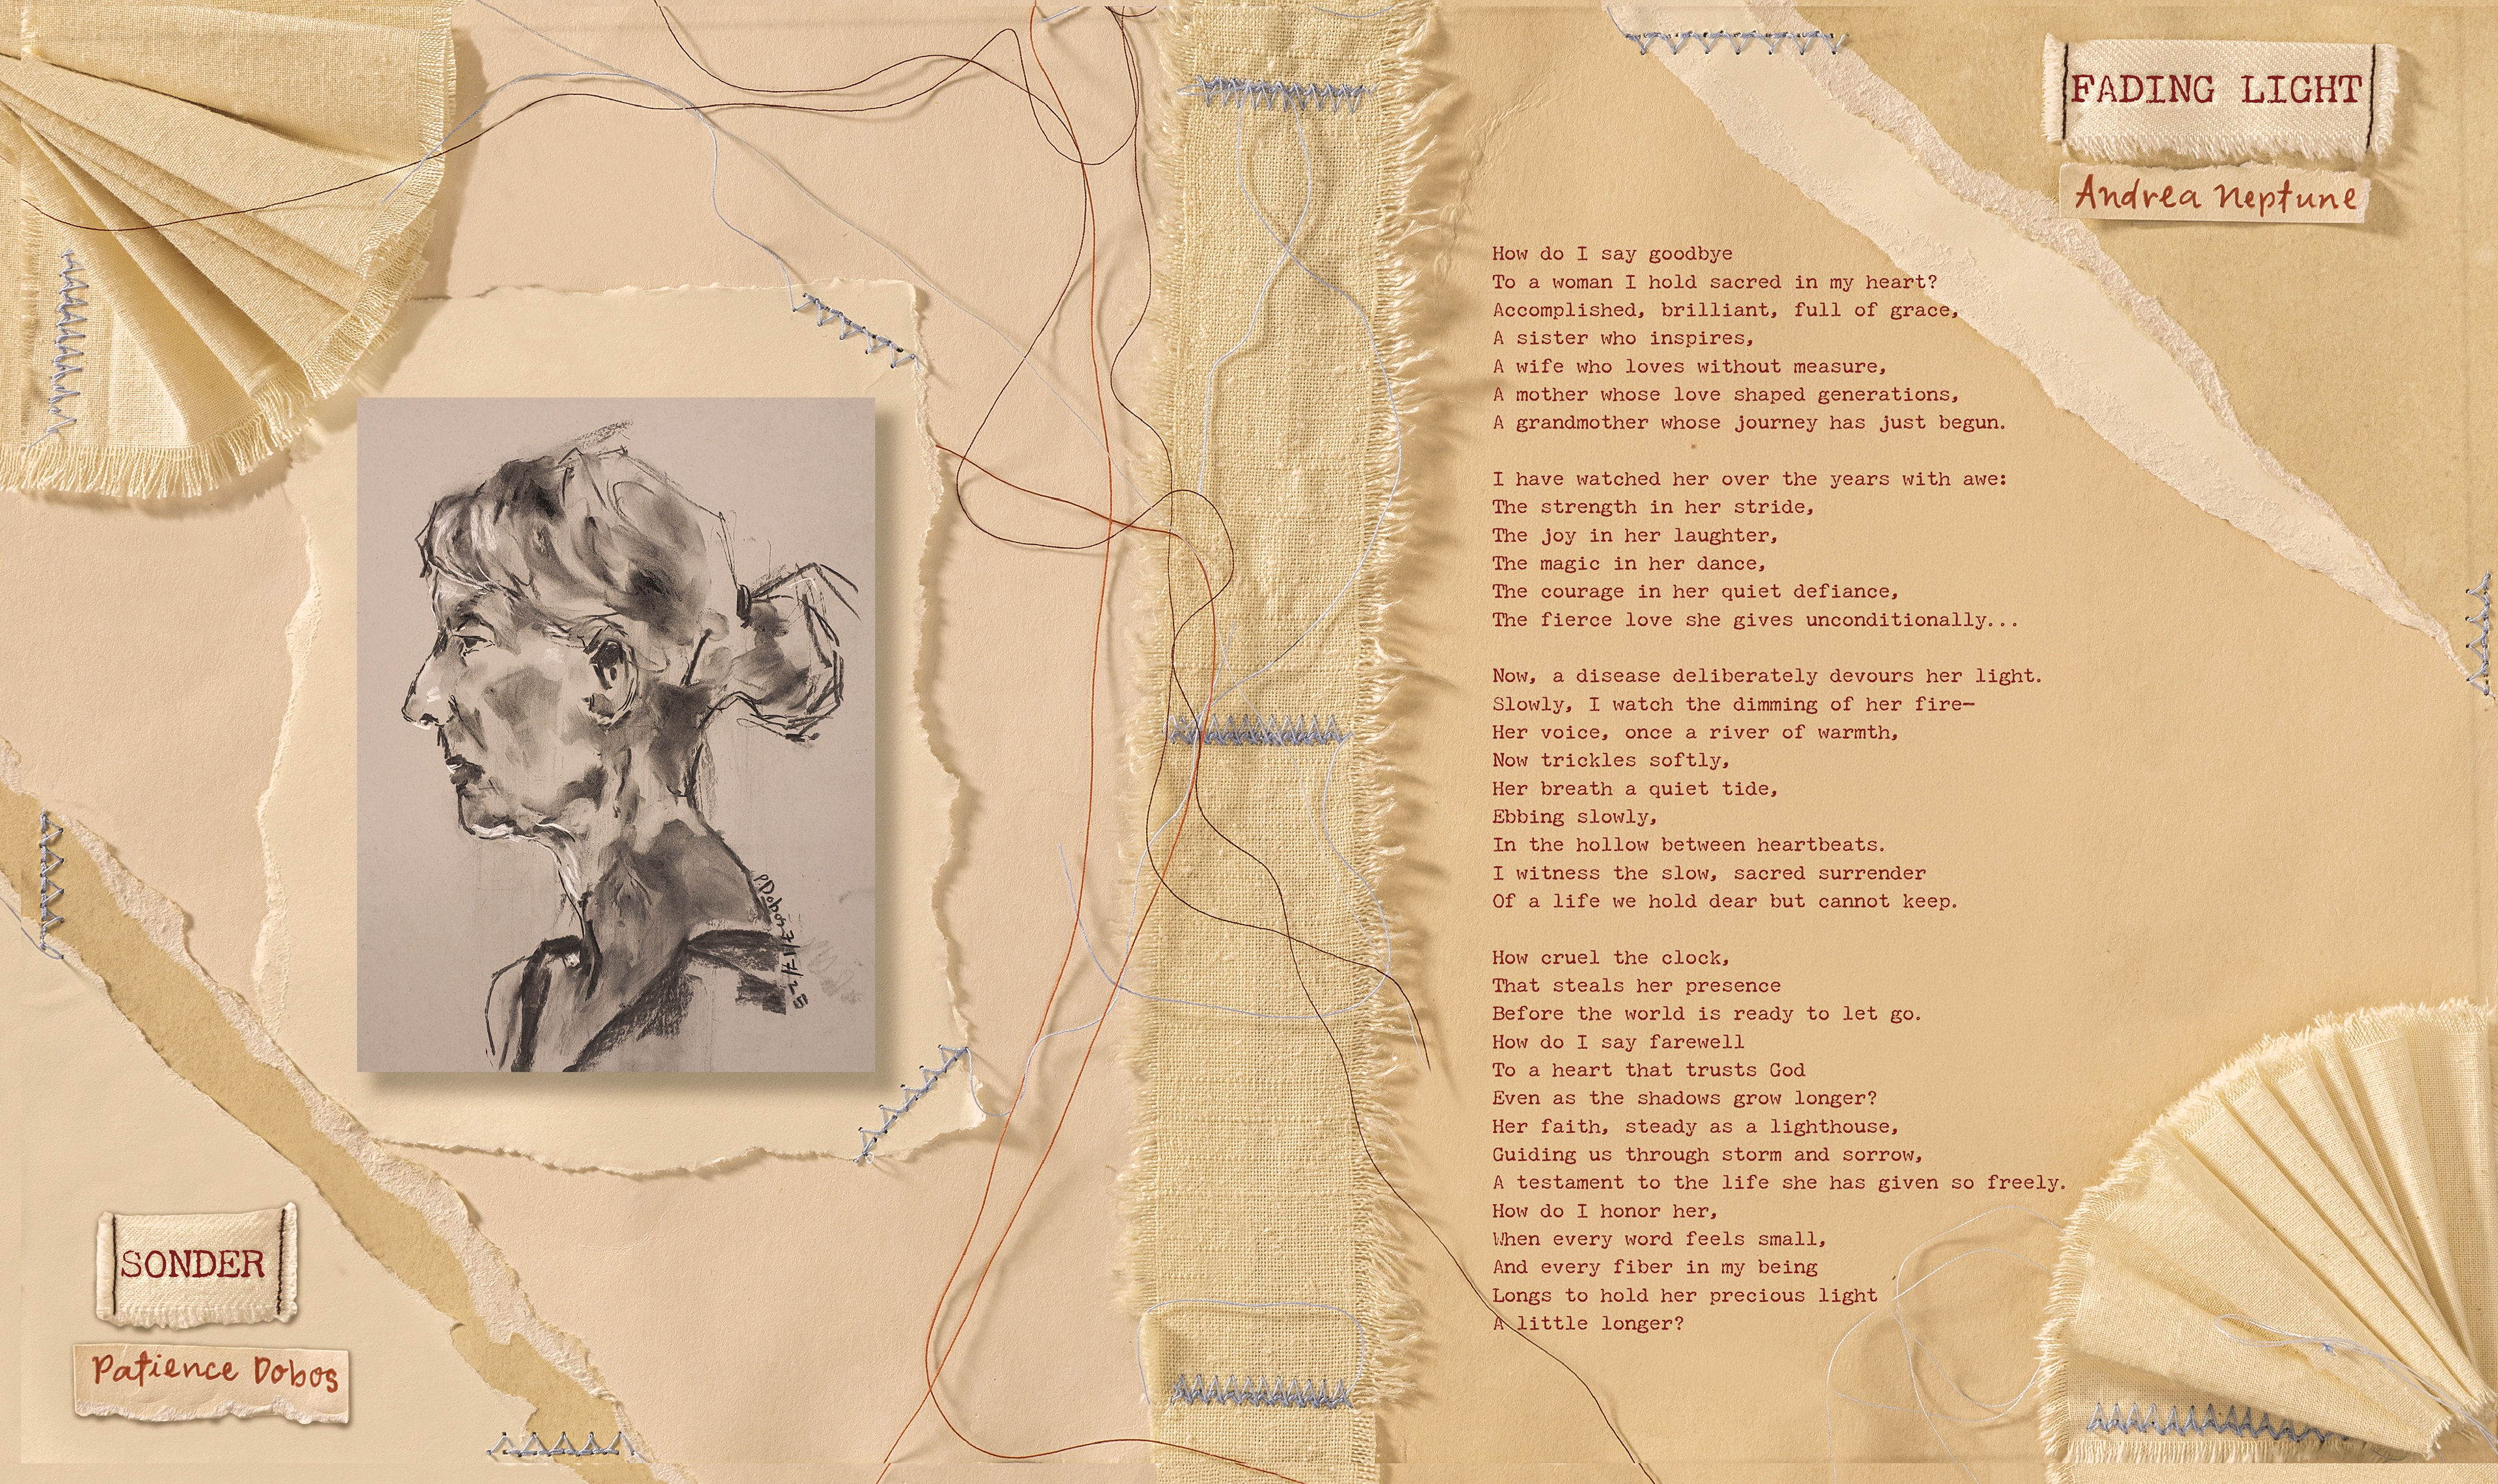 SONDER
Patience Dobos
PDobos 3/17/25
FADING LIGHT
Andrea Neptune
How do I say goodbye
To a woman I hold sacred in my heart?
Accomplished, brilliant, full of grace,
A sister who inspires,
A wife who loves without measure,
A mother whose love shaped generations,
A grandmother whose journey has just begun.
I have watched her over the years with awe:
The strength in her stride,
The joy in her laughter,
The magic in her dance,
The courage in her quiet defiance,
The fierce love she gives unconditionally...
Now, a disease deliberately devours her light.
Slowly, I watch the dimming of her fire—
Her voice, once a river of warmth,
Now trickles softly,
Her breath a quiet tide,
Ebbing slowly,
In the hollow between heartbeats.
I witness the slow, sacred surrender
Of a life we hold dear but cannot keep.
How cruel the clock,
That steals her presence
Before the world is ready to let go.
How do I say farewell
To a heart that trusts God
Even as the shadows grow longer?
Her faith, steady as a lighthouse,
Guiding us through storm and sorrow,
A testament to the life she has given so freely.
How do I honor her,
When every word feels small,
And every fiber in my being
Longs to hold her precious light
A little longer?